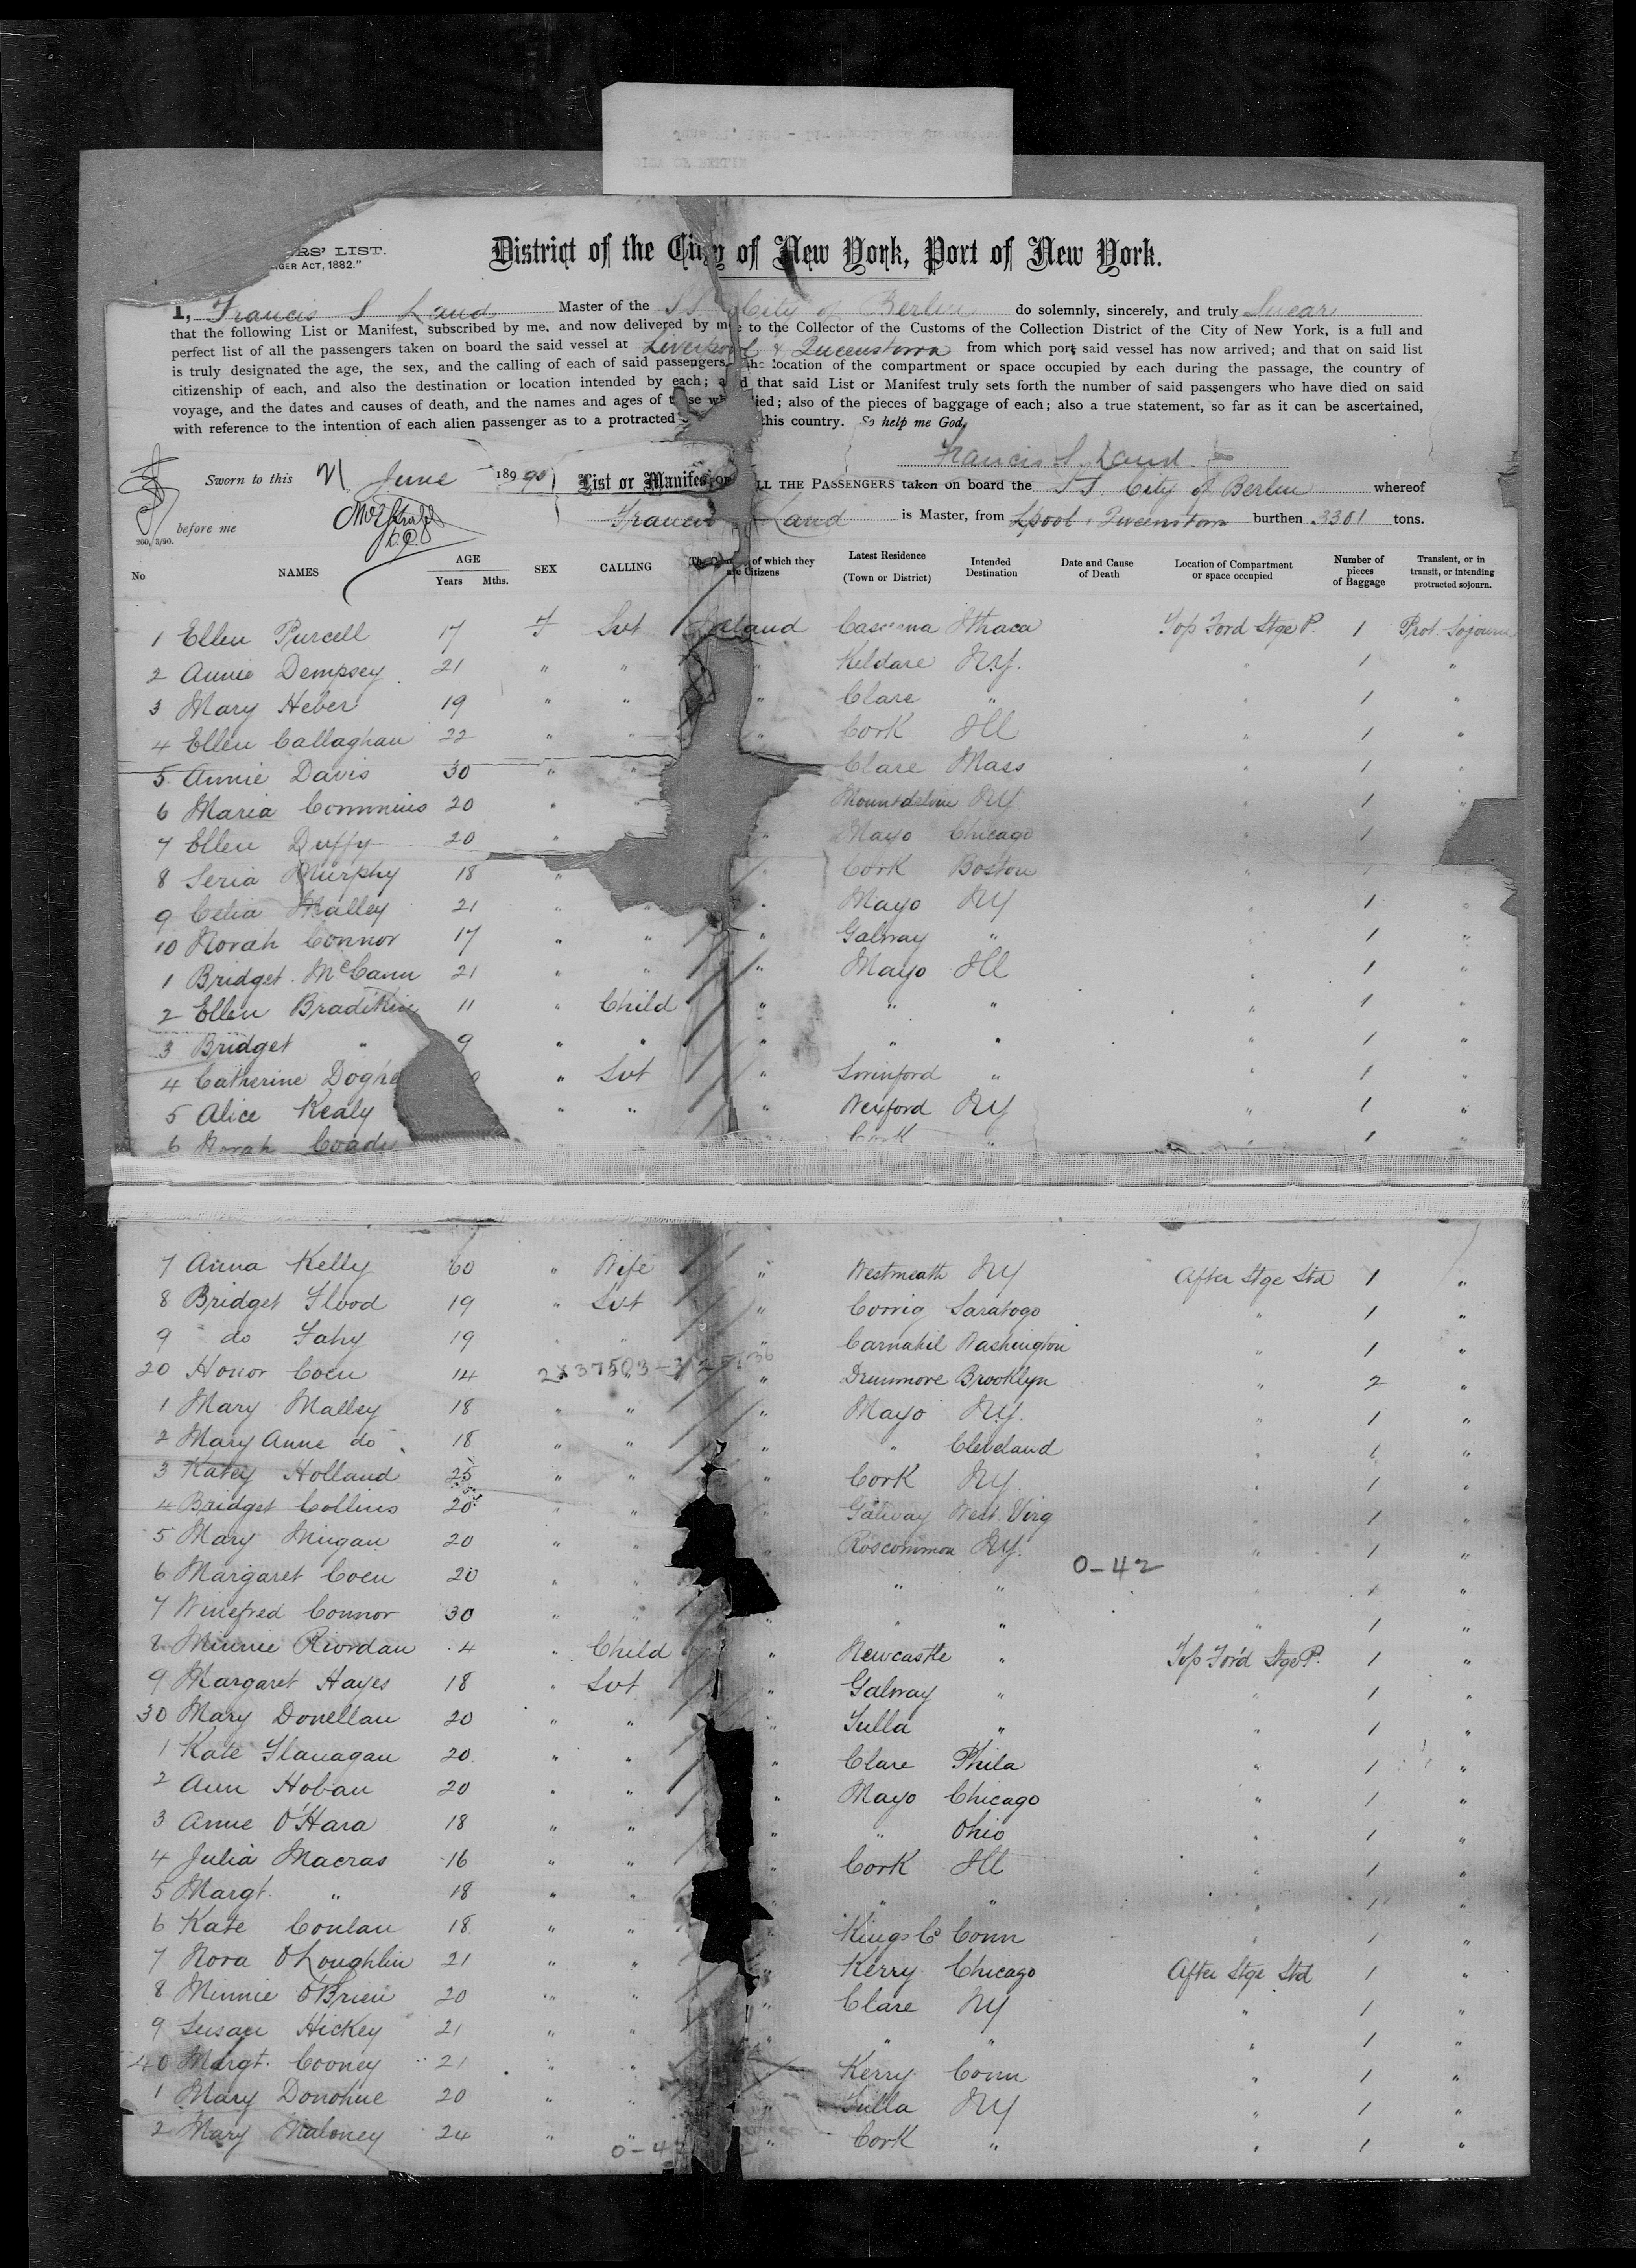 RS' LIST.
NGER ACT, 1882."
District of the City of New York, Port of New York.
I, Francis S Land Master of the SS City of Berlin do solemnly, sincerely, and truly Swear
that the following List or Manifest, subscribed by me, and now delivered by me to the Collector of the Customs of the Collection District of the City of New York, is a full and
perfect list of all the passengers taken on board the said vessel at Liverpool & Queenstown from which port said vessel has now arrived; and that on said list
is truly designated the age, the sex, and the calling of each of said passengers, the location of the compartment or space occupied by each during the passage, the country of
citizenship of each, and also the destination or location intended by each; and that said List or Manifest truly sets forth the number of said passengers who have died on said
voyage, and the dates and causes of death, and the names and ages of those who died; also of the pieces of baggage of each; also a true statement, so far as it can be ascertained,
with reference to the intention of each alien passenger as to a protracted this country. So help me God,
Francis S. Land
Sworn to this 21 June 189 90 List or Manifest OF ALL THE PASSENGERS taken on board the SS City of Berlin whereof
before me Francis Land is Master, from Lpool & Queenstown burthen 3301 tons.
200, 3/90.
No NAMES AGE Years Mths. SEX CALLING The of which they are Citizens Latest Residence (Town or District) Intended Destination Date and Cause of Death Location of Compartment or space occupied Number of pieces of Baggage Transient, or in transit, or intending protracted sojourn.
1 Ellen Purcell 17 F Svt Ireland Ithaca Top Ford Stge P. 1 Prot. Sojourn
2 Annie Dempsey 21 " " " Keldare N.Y. " 1 "
3 Mary Heber 19 " " " Clare " " 1 "
4 Ellen Callaghan 22 " " " Cork Ill " 1 "
5 Annie Davis 30 " " Clare Mass " 1 "
6 Maria Commins 20 " NY " 1 "
7 Ellen Duffy 20 " " Mayo Chicago " 1
8 Seria Murphy 18 " " Cork Boston "
9 Celia Malley 21 " " " Mayo NY " 1 "
10 Norah Connor 17 " " " Galway " " 1 "
1 Bridget McCann 21 " " " Mayo Ill " 1 "
2 Ellen 11 " Child " " " " 1 "
3 Bridget " 9 " " " " " " 1 "
4 Catherine Doghe " Svt " Swinford " " 1 "
5 Alice Kealy " " " Wexford NY " 1 "
6 Norah Coady Cork " " 1 "
7 Anna Kelly 60 " Wife " Westmeath NY After Stge Std 1 "
8 Bridget Flood 19 " Svt " Corrig Saratogo " 1 "
9 do Fahy 19 " " " Carnakil Washington " 1 "
20 Honor Coen 14 " Drummore Brooklyn " 2 "
1 Mary Malley 18 " " " Mayo N.Y. " 1 "
2 Mary Anne do 18 " " " " Cleveland " 1 "
3 Katey Holland 25 " " " Cork NY " 1 "
4 Bridget Collins 20 " " " Galway West. Virg " 1 "
5 Mary Mugan 20 " " " Roscommon NY. " 1 "
0-42
6 Margaret Coen 20 " " " " " 1 "
7 Winefred Connor 30 " " " " " " 1 "
8 Minnie Riordan 4 " Child " Newcastle " Top Ford Stge P. 1 "
9 Margaret Hayes 18 " Svt " Galway " " 1 "
30 Mary Donellan 20 " " " Tulla " " 1 "
1 Kate Flanagan 20 " " " Clare Phila " 1 "
2 Ann Hoban 20 " " " Mayo Chicago " 1 "
3 Anne O'Hara 18 " " " " Ohio " 1 "
4 Julia Macras 16 " " " Cork Ill " 1 "
5 Margt. " 18 " " " " " 1 "
6 Kate Conlan 18 " " " Kings Co Conn " 1 "
7 Nora O'Loughlin 21 " " " Kerry Chicago After Stge Std 1 "
8 Minnie O'Brien 20 " " " Clare NY " 1 "
9 Susan Hickey 21 " " " " " " 1 "
40 Margt. Cooney 21 " " Kerry Conn " 1 "
1 Mary Donohue 20 " " " Tulla NY " 1 "
2 Mary Maloney 24 " " " Cork " " 1 "
0-42